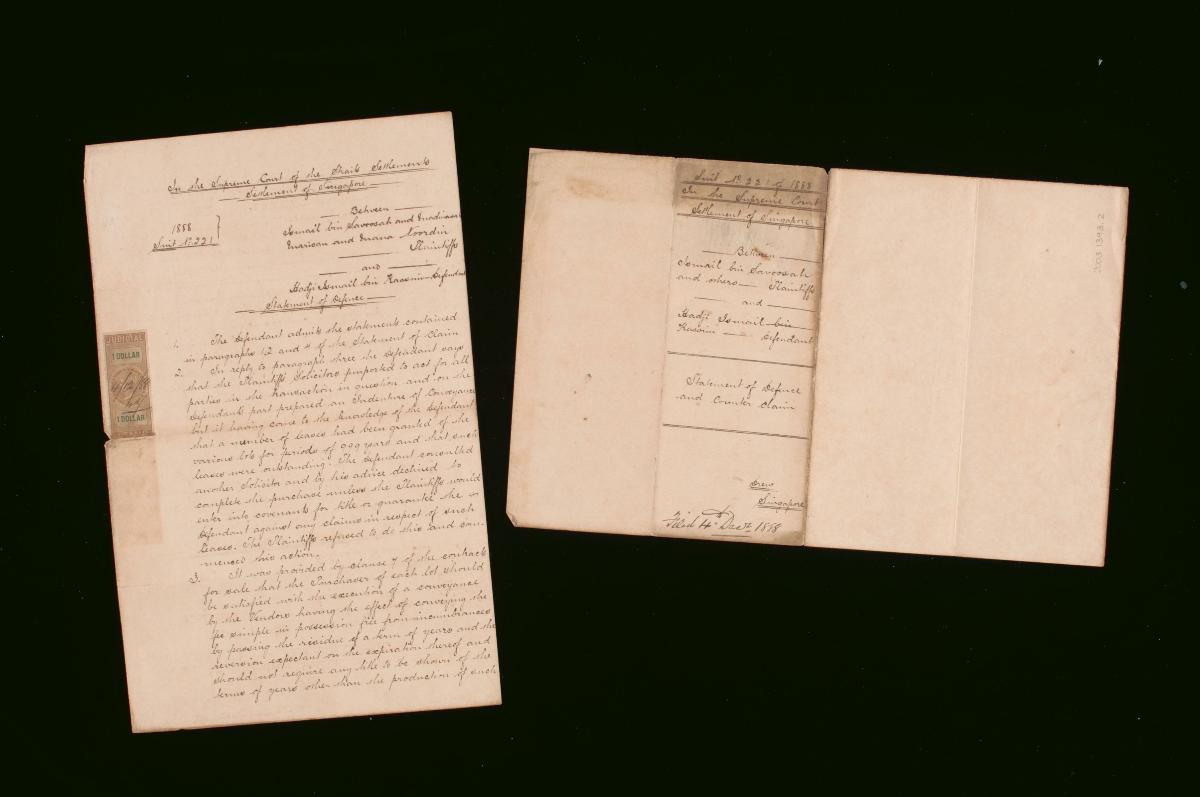 In the Supreme Court of the Straits Settlements
Settlement of Singapore
1888
Suit No. 221
Between
Ismail bin Savoosah and
and Mana Noordin
Plaintiffs
and
Hadji Ismail bin Kassim Defendant
Statement of Defence
JUDICIAL
1 DOLLAR
4/12/88
1 DOLLAR
1. The Defendant admits the statements contained
in paragraphs 1, 2 and 4 of the Statement of Claim
2. In reply to paragraph three the Defendant says
that the Plaintiffs Solicitors purported to act for all
parties in the transaction in question and on the
Defendants part prepared an Indenture of Conveyance
but it having come to the knowledge of the Defendant
that a number of leases had been granted of the
various lots for periods of 999 years and that such
leases were outstanding. The Defendant consulted
another Solicitor and by his advice declined to
complete the purchase unless the Plaintiffs would
enter into covenants for title or guarantee the
Defendant against any claims in respect of such
leases. The Plaintiffs refused to do this and com-
menced this action.
3. It was provided by clause 7 of the contracts
for sale that the Purchaser of each lot should
be satisfied with the execution of a conveyance
by the Vendors having the effect of conveying the
fee simple in possession free from incumbrances
by passing the residue of a term of years and the
reversion expectant on the expiration thereof and
should not require any title to be shown of the
terms of years other than the production of such
Suit No. 221 of 1888
In the Supreme Court
Settlement of Singapore
Between
Ismail bin Savoosah
and others Plaintiffs
and
Hadji Ismail bin
Kassim Defendant
Statement of Defence
and Counter Claim
Drew
Singapore
Filed 4th Decr. 1888
2.3931 303